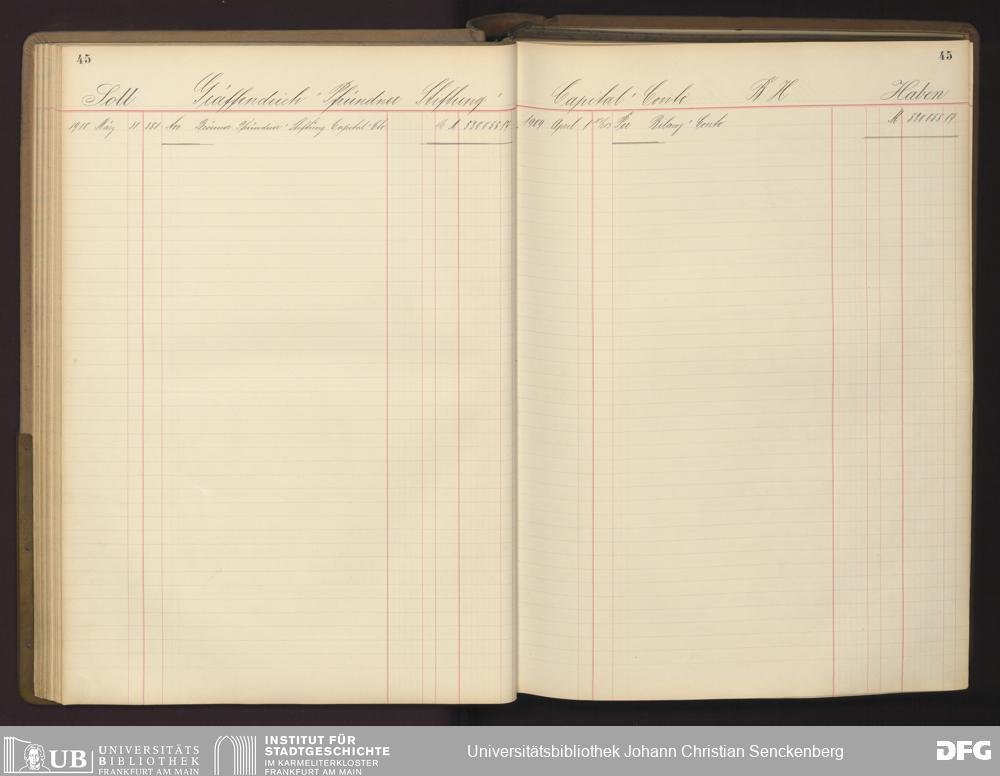 45
45
Soll Gräffendeich Pfründner Stiftung
Capital Conto B H Haben
1910 März 31 An Pfründner Stiftung Capital Cto M
1909 April 1 Per Bilanz Conto M
UB UNIVERSITÄTS
BIBLIOTHEK
FRANKFURT AM MAIN
INSTITUT FÜR
STADTGESCHICHTE
IM KARMELITERKLOSTER
FRANKFURT AM MAIN
Universitätsbibliothek Johann Christian Senckenberg
DFG